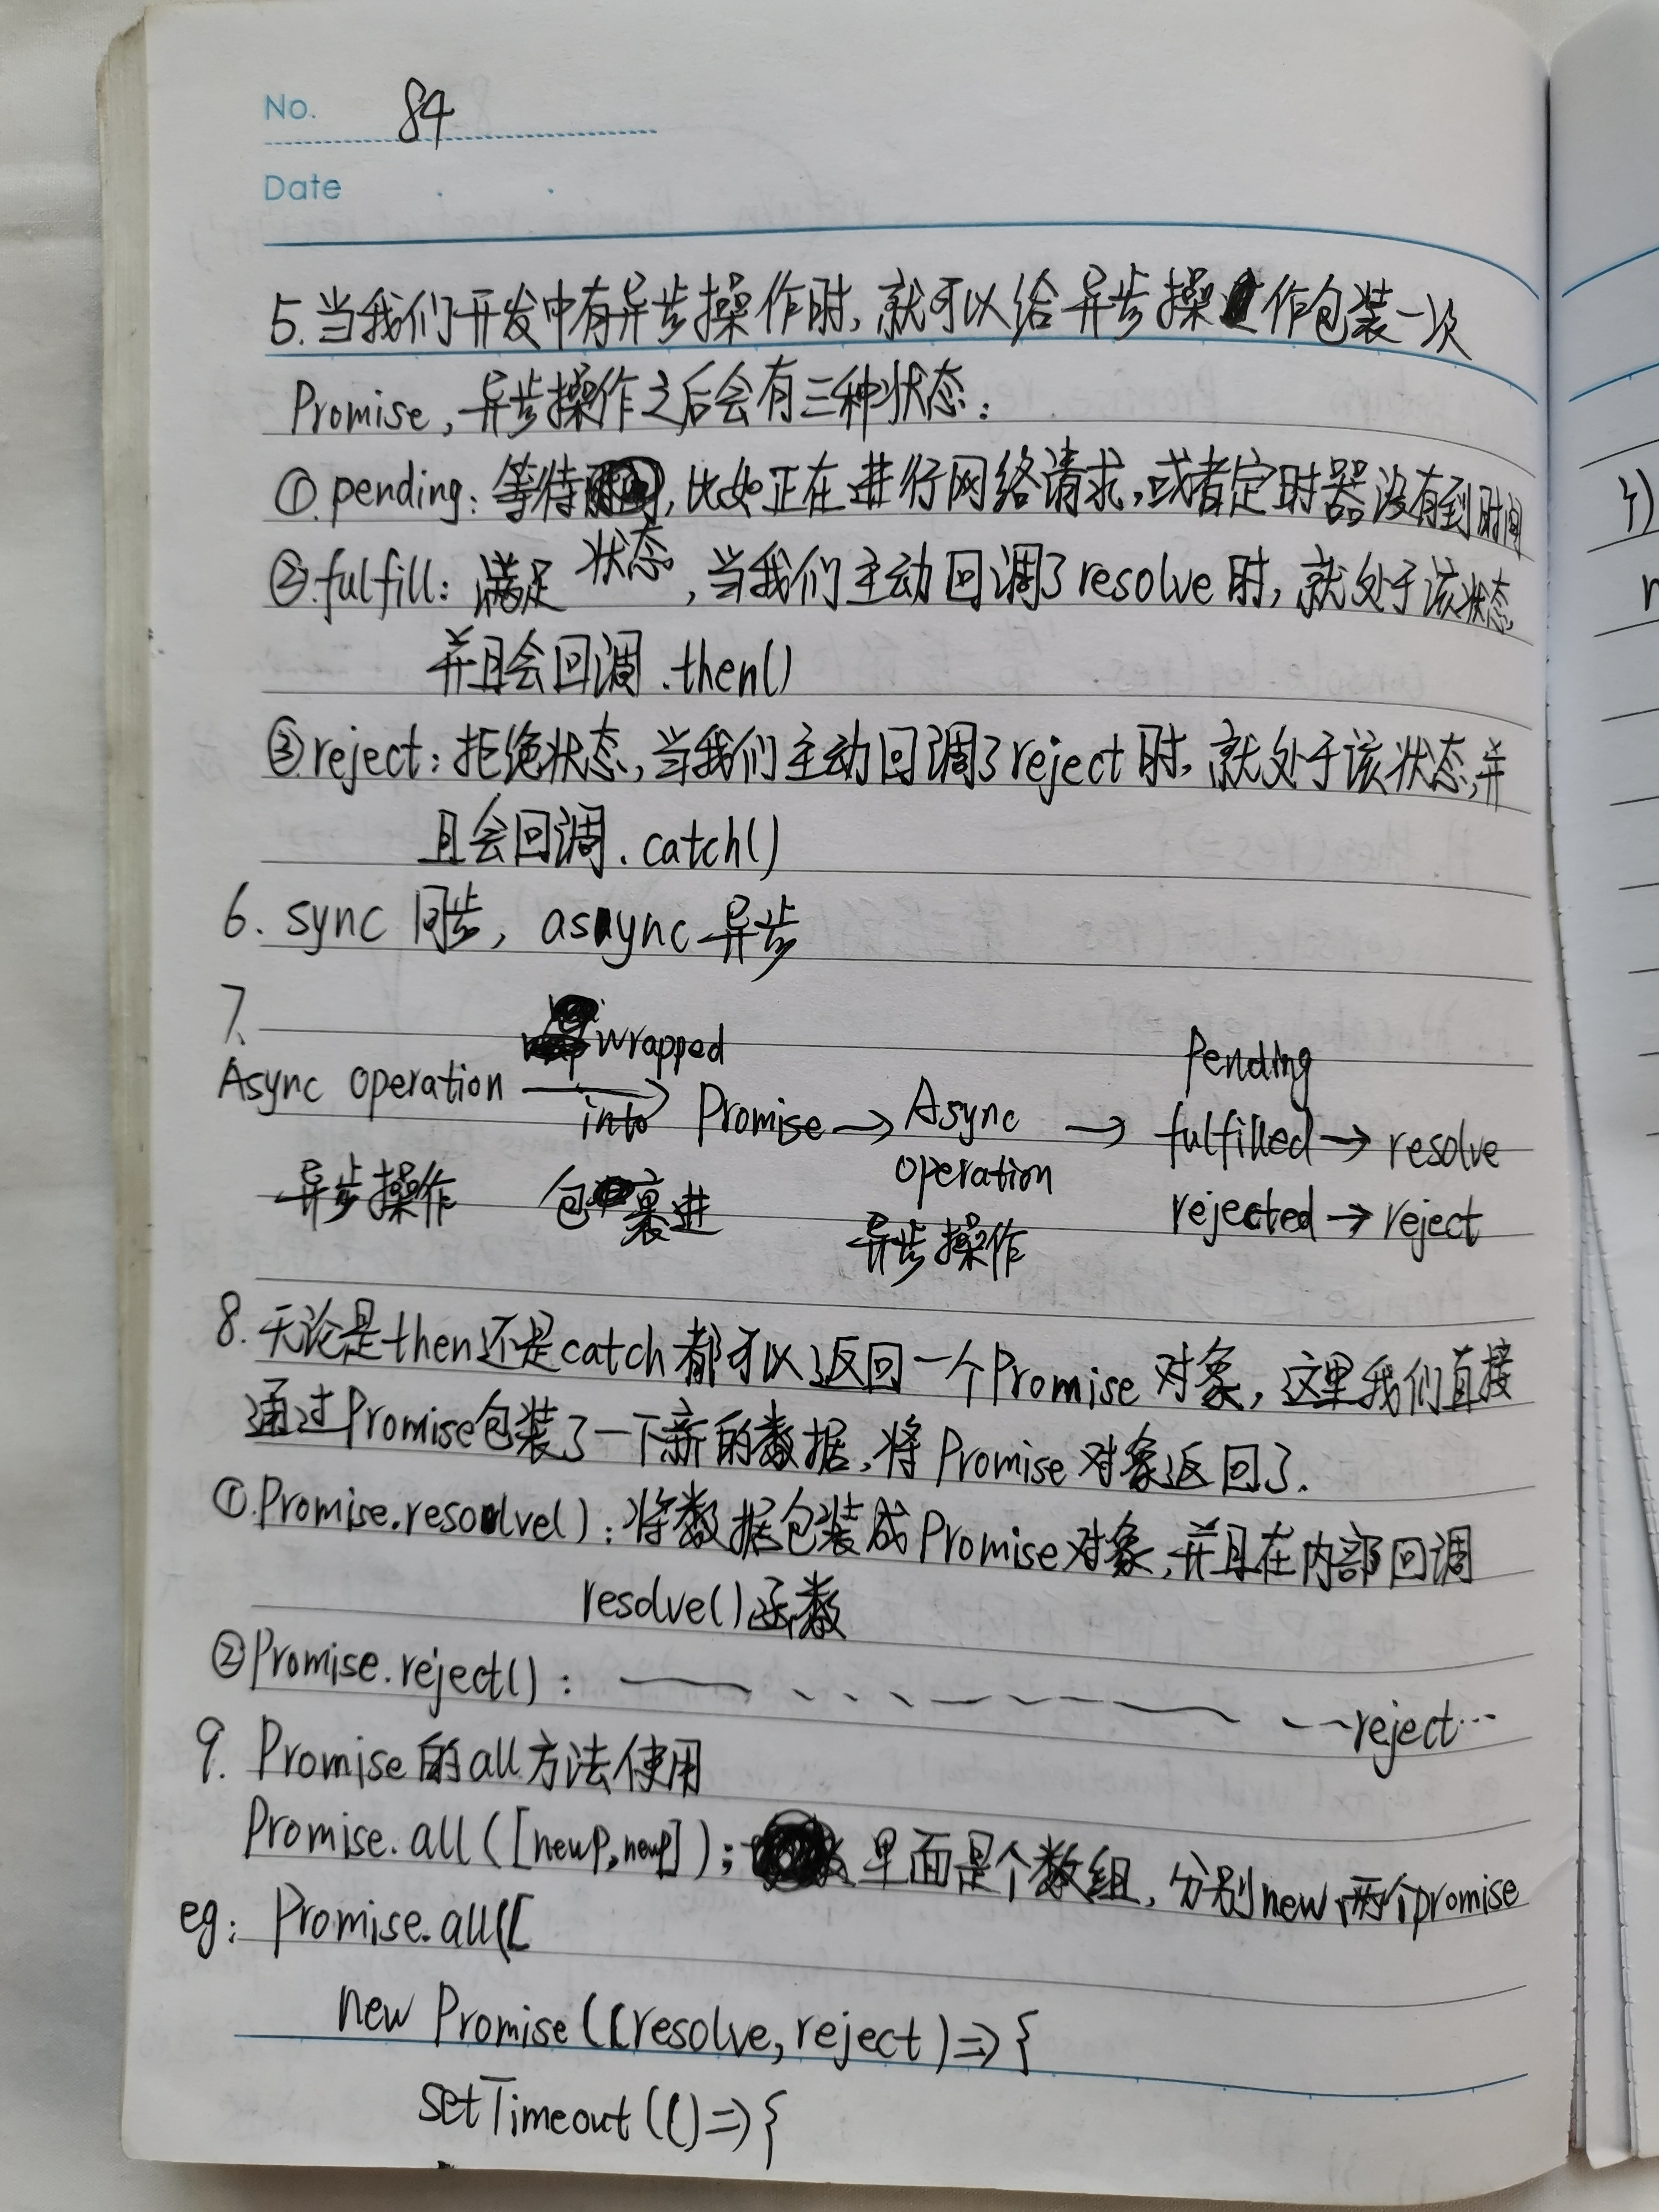 No. 84
Date
5.当我们开发中有异步操作时,就可以给异步操作包装一次
Promise,异步操作之后会有三种状态:
①.pending:等待状态,比如正在进行网络请求,或者定时器没有到时间
②.fulfill:满足状态,当我们主动回调了resolve时,就处于该状态,
并且会回调.then()
③reject:拒绝状态,当我们主动回调了reject时,就处于该状态,并
且会回调.catch()
6.sync 同步, async 异步
7.
Async operation wrapped into Promise → Async operation → Pending
fulfilled → resolve
rejected → reject
异步操作 包裹进 异步操作
8.无论是then还是catch都可以返回一个Promise对象,这里我们直接
通过Promise包装了一下新的数据,将Promise对象返回了.
①.Promise.resolve():将数据包装成Promise对象,并且在内部回调
resolve()函数
②Promise.reject(): reject…
9. Promise的all方法使用
Promise.all([newP,newP]); 里面是个数组,分别new两个promise
eg: Promise.all([
new Promise((resolve,reject)=>{
setTimeout(()=>{